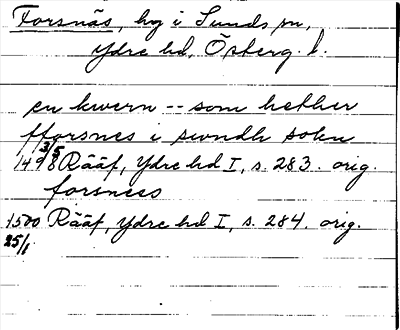 Forsnäs, hg i Sunds sn,
Ydre hd, Östberg. l.
en kwern -- som hether
fforsnes i swndh soken
1498 3/5 Rääf, Ydre hd I, s. 283. orig.
forsness
1500 Rääf, Ydre hd I, s. 284. orig.
25/1